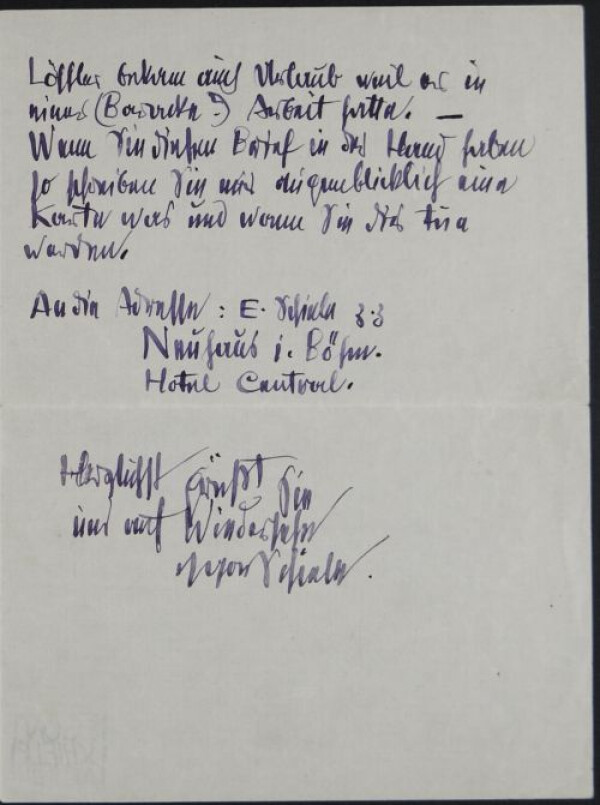 Löffler bekam auch Urlaub weil er in
einer (Baracke?) Arbeit hatte. —
Wenn Sie diesen Brief in der Hand haben
so schreiben Sie mir augenblicklich eine
Karte was und wann Sie das tun
werden.
An die Adresse: E. Schiele z. Z
Neuhaus i. Böhm.
Hotel Central.
Herzlichst grüßt Sie
und auf Wiedersehn
Egon Schiele.